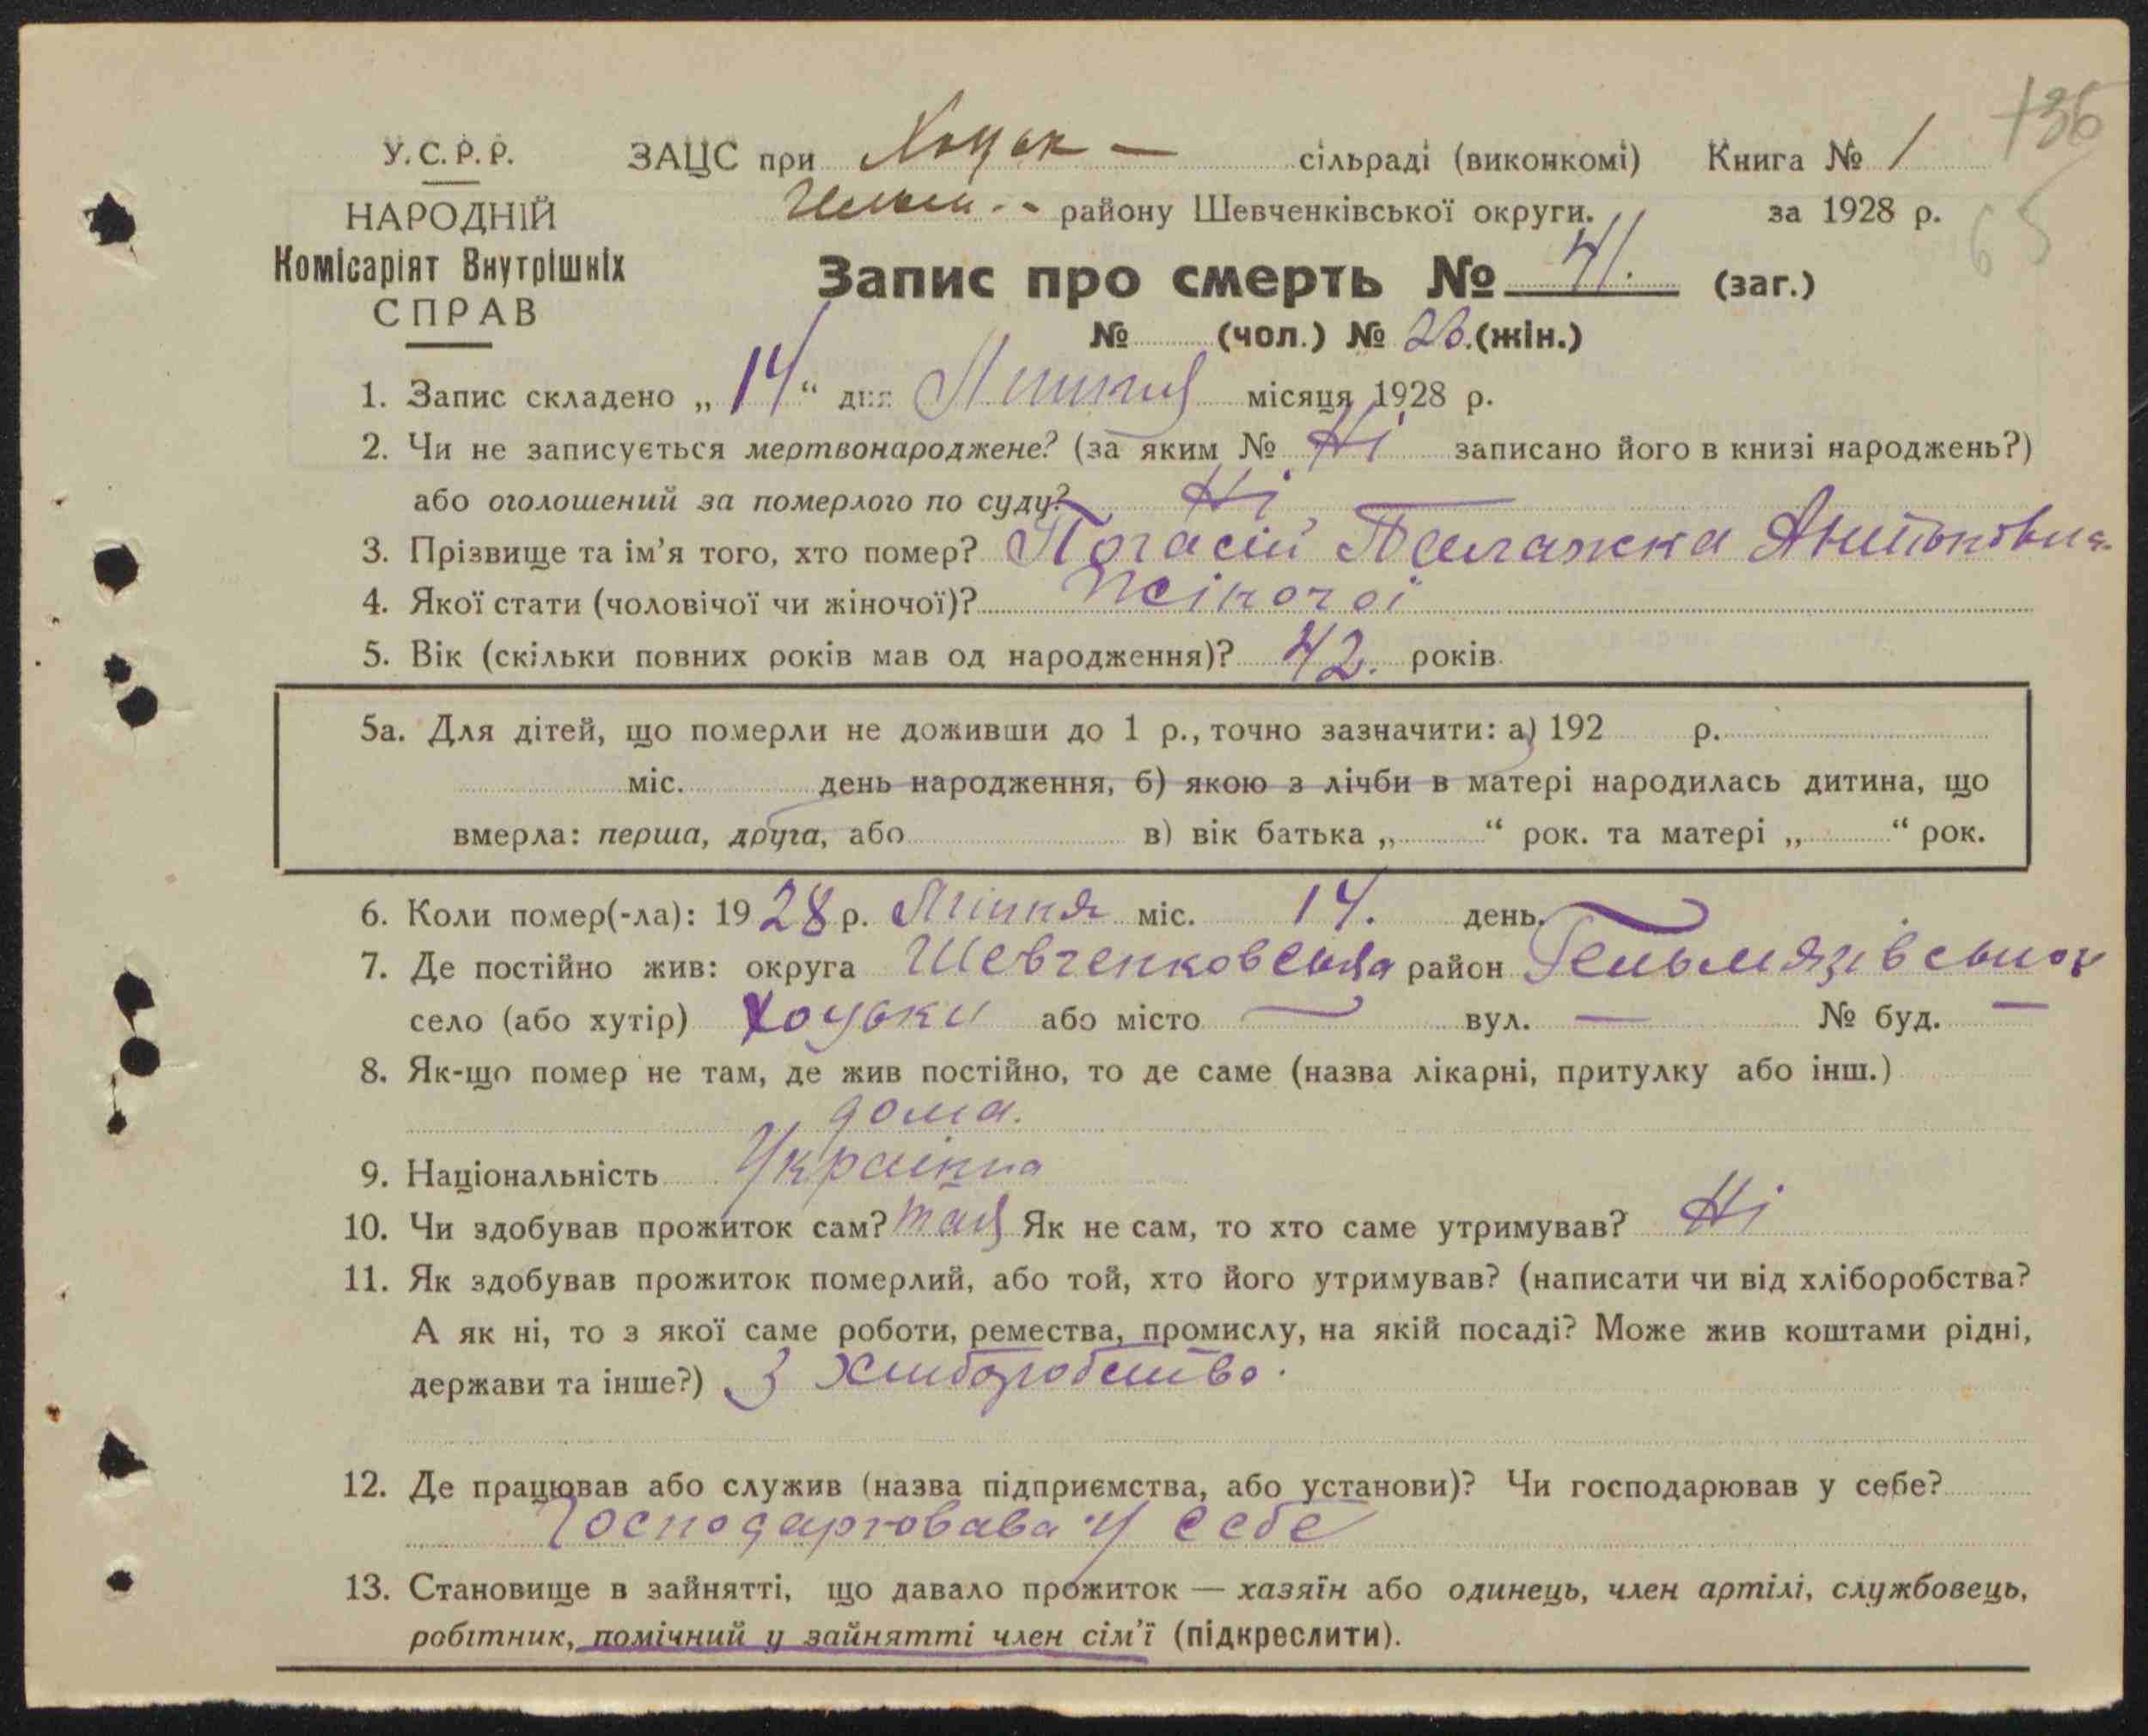 136
65
У.С.Р.Р.
НАРОДНІЙ
Комісаріят Внутрішніх
СПРАВ
ЗАЦС при Хоцьк — сільраді (виконкомі) Книга № 1
району Шевченківської округи. за 1928 р.
Запис про смерть № 41. (заг.)
№ (чол.) № 26. (жін.)
1. Запис складено „14“ дня Липня місяця 1928 р.
2. Чи не записується мертвонароджене? (за яким № Ні записано його в книзі народжень?)
або оголошений за померлого по суду? Ні
3. Прізвище та ім’я того, хто помер? Погасій Палажка
4. Якої стати (чоловічої чи жіночої)? Жіночоі
5. Вік (скільки повних років мав од народження)? 42. років
5а. Для дітей, що померли не доживши до 1 р., точно зазначити: а) 192 р.
міс. день народження, б) якою з лічби в матері народилась дитина, що
вмерла: перша, друга, або в) вік батька „ “ рок. та матері „ “ рок.
6. Коли помер(-ла): 1928 р. Липня міс. 14. день.
7. Де постійно жив: округа Шевченковська район Гельмязівський
село (або хутір) Хоцьки або місто — вул. — № буд. —
8. Як-що помер не там, де жив постійно, то де саме (назва лікарні, притулку або інш.)
дома.
9. Національність Украінка
10. Чи здобував прожиток сам? так Як не сам, то хто саме утримував? Ні
11. Як здобував прожиток померлий, або той, хто його утримував? (написати чи від хліборобства?
А як ні, то з якої саме роботи, ремества, промислу, на якій посаді? Може жив коштами рідні,
держави та інше?) З хліборобство.
12. Де працював або служив (назва підприємства, або установи)? Чи господарював у себе?
Господарювава у себе
13. Становище в зайнятті, що давало прожиток — хазяїн або одинець, член артілі, службовець,
робітник, помічний у зайнятті член сім’ї (підкреслити).